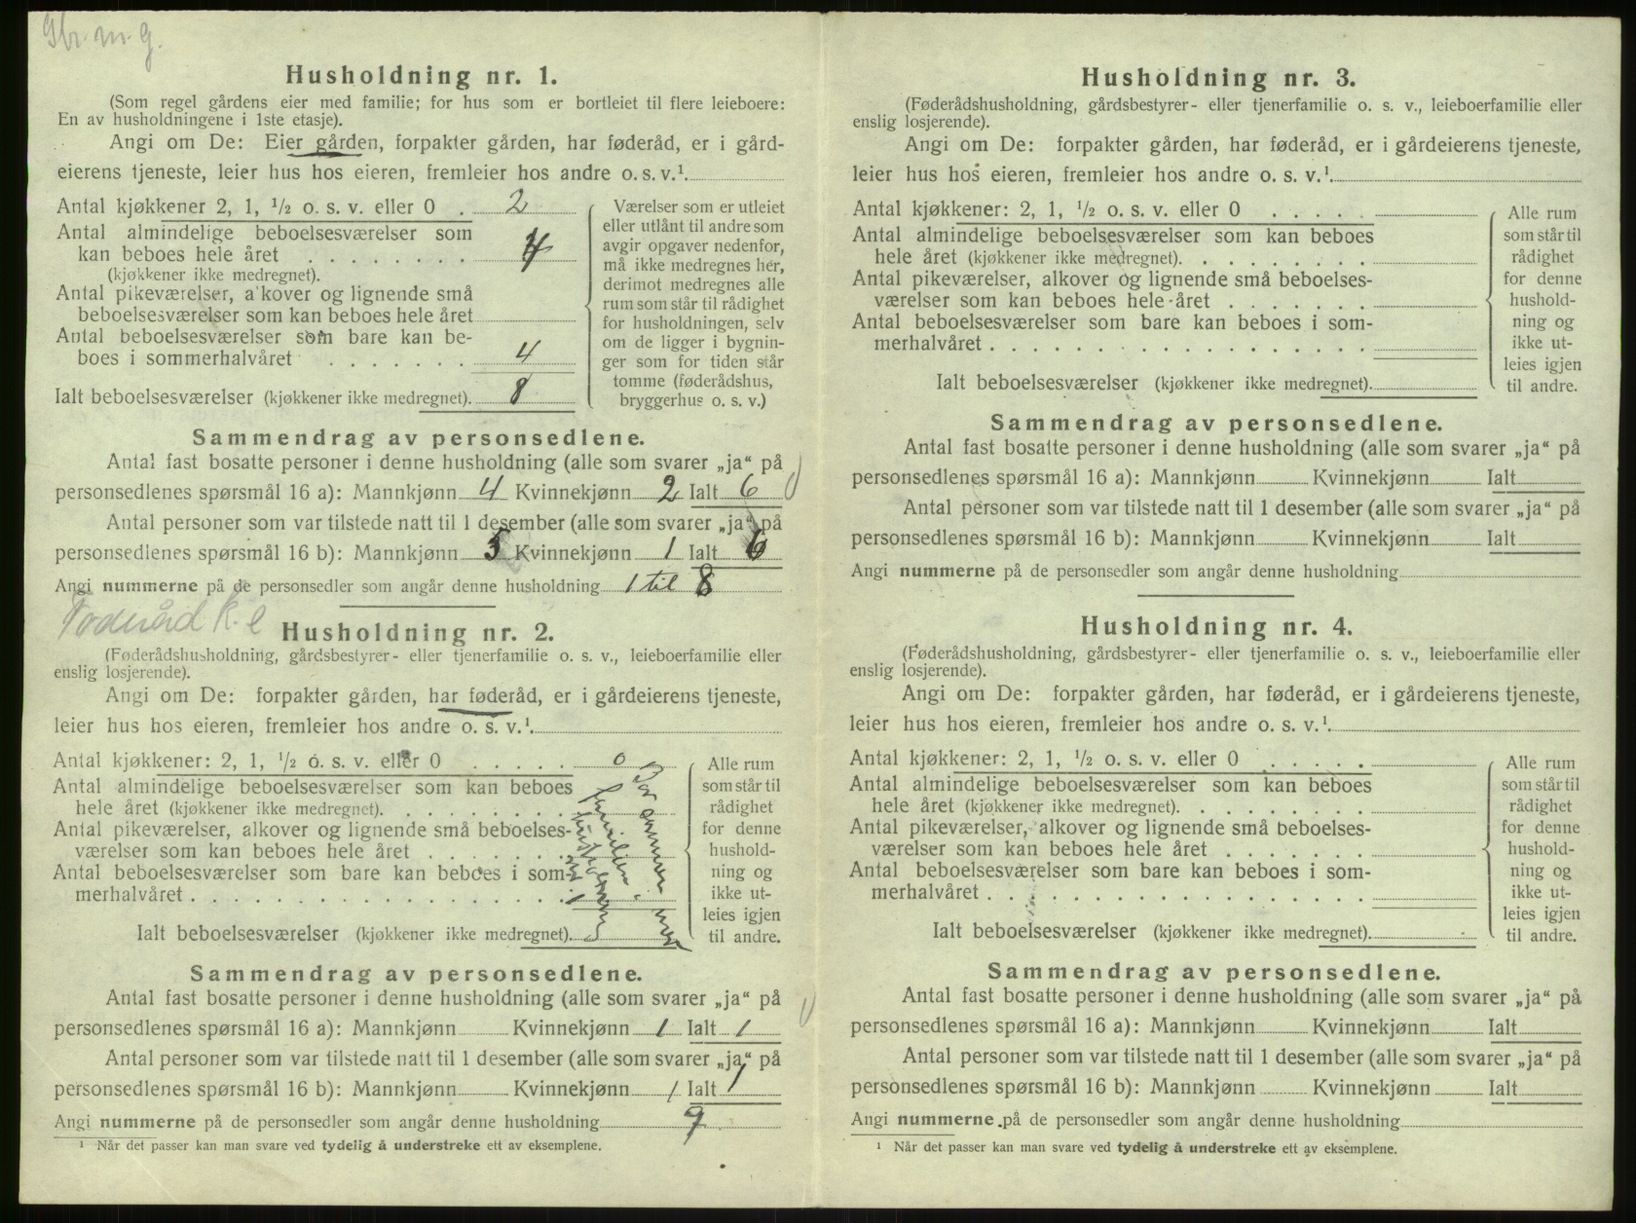 Gbr. m. g.
Husholdning nr. 1.
(Som regel gårdens eier med familie; for hus som er bortleiet til flere leieboere:
En av husholdningene i 1ste etasje).
Angi om De: Eier gården, forpakter gården, har føderåd, er i gård-
eierens tjeneste, leier hus hos eieren, fremleier hos andre o. s. v.¹.
Antal kjøkkener 2, 1, ½ o. s. v. eller 0 . 2
Antal almindelige beboelsesværelser som
kan beboes hele året . . . . . . . . 4
(kjøkkener ikke medregnet).
Antal pikeværelser, a'kover og lignende små
beboelsesværelser som kan beboes hele året
Antal beboelsesværelser som bare kan be-
boes i sommerhalvåret . . . . . . . 4
Ialt beboelsesværelser (kjøkkener ikke medregnet). 8
Værelser som er utleiet
eller utlånt til andre som
avgir opgaver nedenfor,
må ikke medregnes her,
derimot medregnes alle
rum som står til rådighet
for husholdningen, selv
om de ligger i bygnin-
ger som for tiden står
tomme (føderådshus,
bryggerhus o. s. v.)
Sammendrag av personsedlene.
Antal fast bosatte personer i denne husholdning (alle som svarer „ja“ på
personsedlenes spørsmål 16 a): Mannkjønn 4 Kvinnekjønn 2 Ialt 6
Antal personer som var tilstede natt til 1 desember (alle som svarer „ja“ på
personsedlenes spørsmål 16 b): Mannkjønn 5 Kvinnekjønn 1 Ialt 6
Angi nummerne på de personsedler som angår denne husholdning 1 til 8
Føderåd k. e
Husholdning nr. 2.
(Føderådshusholdning, gårdsbestyrer- eller tjenerfamilie o. s. v., leieboerfamilie eller
enslig losjerende).
Angi om De: forpakter gården, har føderåd, er i gårdeierens tjeneste,
leier hus hos eieren, fremleier hos andre o. s. v.¹.
Antal kjøkkener: 2, 1, ½ o. s. v. eller 0 . . . . . 0
Antal almindelige beboelsesværelser som kan beboes
hele året (kjøkkener ikke medregnet). . . . . . . . .
Antal pikeværelser, alkover og lignende små beboelses-
værelser som kan beboes hele året . . . . . . .
Antal beboelsesværelser som bare kan beboes i som-
merhalvåret . . . . . . . . . . . . . . . . . .
Ialt beboelsesværelser (kjøkkener ikke medregnet).
Bor sammen med
familien i
Alle rum
som står til
rådighet
for denne
hushold-
ning og
ikke ut-
leies igjen
til andre.
Sammendrag av personsedlene.
Antal fast bosatte personer i denne husholdning (alle som svarer „ja“ på
personsedlenes spørsmål 16 a): Mannkjønn Kvinnekjønn 1 Ialt 1
Antal personer som var tilstede natt til 1 desember (alle som svarer „ja“ på
personsedlenes spørsmål 16 b): Mannkjønn Kvinnekjønn 1 Ialt 1
Angi nummerne på de personsedler som angår denne husholdning 9
¹ Når det passer kan man svare ved tydelig å understreke ett av eksemplene.
Husholdning nr. 3.
(Føderådshusholdning, gårdsbestyrer- eller tjenerfamilie o. s. v., leieboerfamilie eller
enslig losjerende).
Angi om De: forpakter gården, har føderåd, er i gårdeierens tjeneste,
leier hus hos eieren, fremleier hos andre o. s. v.¹.
Antal kjøkkener: 2, 1, ½ o. s. v. eller 0 . . . . .
Antal almindelige beboelsesværelser som kan beboes
hele året (kjøkkener ikke medregnet). . . . . . . . .
Antal pikeværelser, alkover og lignende små beboelses-
værelser som kan beboes hele året . . . . . . .
Antal beboelsesværelser som bare kan beboes i som-
merhalvåret . . . . . . . . . . . . . . . . . .
Ialt beboelsesværelser (kjøkkener ikke medregnet).
Alle rum
som står til
rådighet
for denne
hushold-
ning og
ikke ut-
leies igjen
til andre.
Sammendrag av personsedlene.
Antal fast bosatte personer i denne husholdning (alle som svarer „ja“ på
personsedlenes spørsmål 16 a): Mannkjønn Kvinnekjønn Ialt
Antal personer som var tilstede natt til 1 desember (alle som svarer „ja“ på
personsedlenes spørsmål 16 b): Mannkjønn Kvinnekjønn Ialt
Angi nummerne på de personsedler som angår denne husholdning
Husholdning nr. 4.
(Føderådshusholdning, gårdsbestyrer- eller tjenerfamilie o. s. v., leieboerfamilie eller
enslig losjerende).
Angi om De: forpakter gården, har føderåd, er i gårdeierens tjeneste,
leier hus hos eieren, fremleier hos andre o. s. v.¹.
Antal kjøkkener: 2, 1, ½ o. s. v. eller 0 . . . . .
Antal almindelige beboelsesværelser som kan beboes
hele året (kjøkkener ikke medregnet). . . . . . . . .
Antal pikeværelser, alkover og lignende små beboelses-
værelser som kan beboes hele året . . . . . . .
Antal beboelsesværelser som bare kan beboes i som-
merhalvåret . . . . . . . . . . . . . . . . . .
Ialt beboelsesværelser (kjøkkener ikke medregnet).
Alle rum
som står til
rådighet
for denne
hushold-
ning og
ikke ut-
leies igjen
til andre.
Sammendrag av personsedlene.
Antal fast bosatte personer i denne husholdning (alle som svarer „ja“ på
personsedlenes spørsmål 16 a): Mannkjønn Kvinnekjønn Ialt
Antal personer som var tilstede natt til 1 desember (alle som svarer „ja“ på
personsedlenes spørsmål 16 b): Mannkjønn Kvinnekjønn Ialt
Angi nummerne på de personsedler som angår denne husholdning
¹ Når det passer kan man svare ved tydelig å understreke ett av eksemplene.